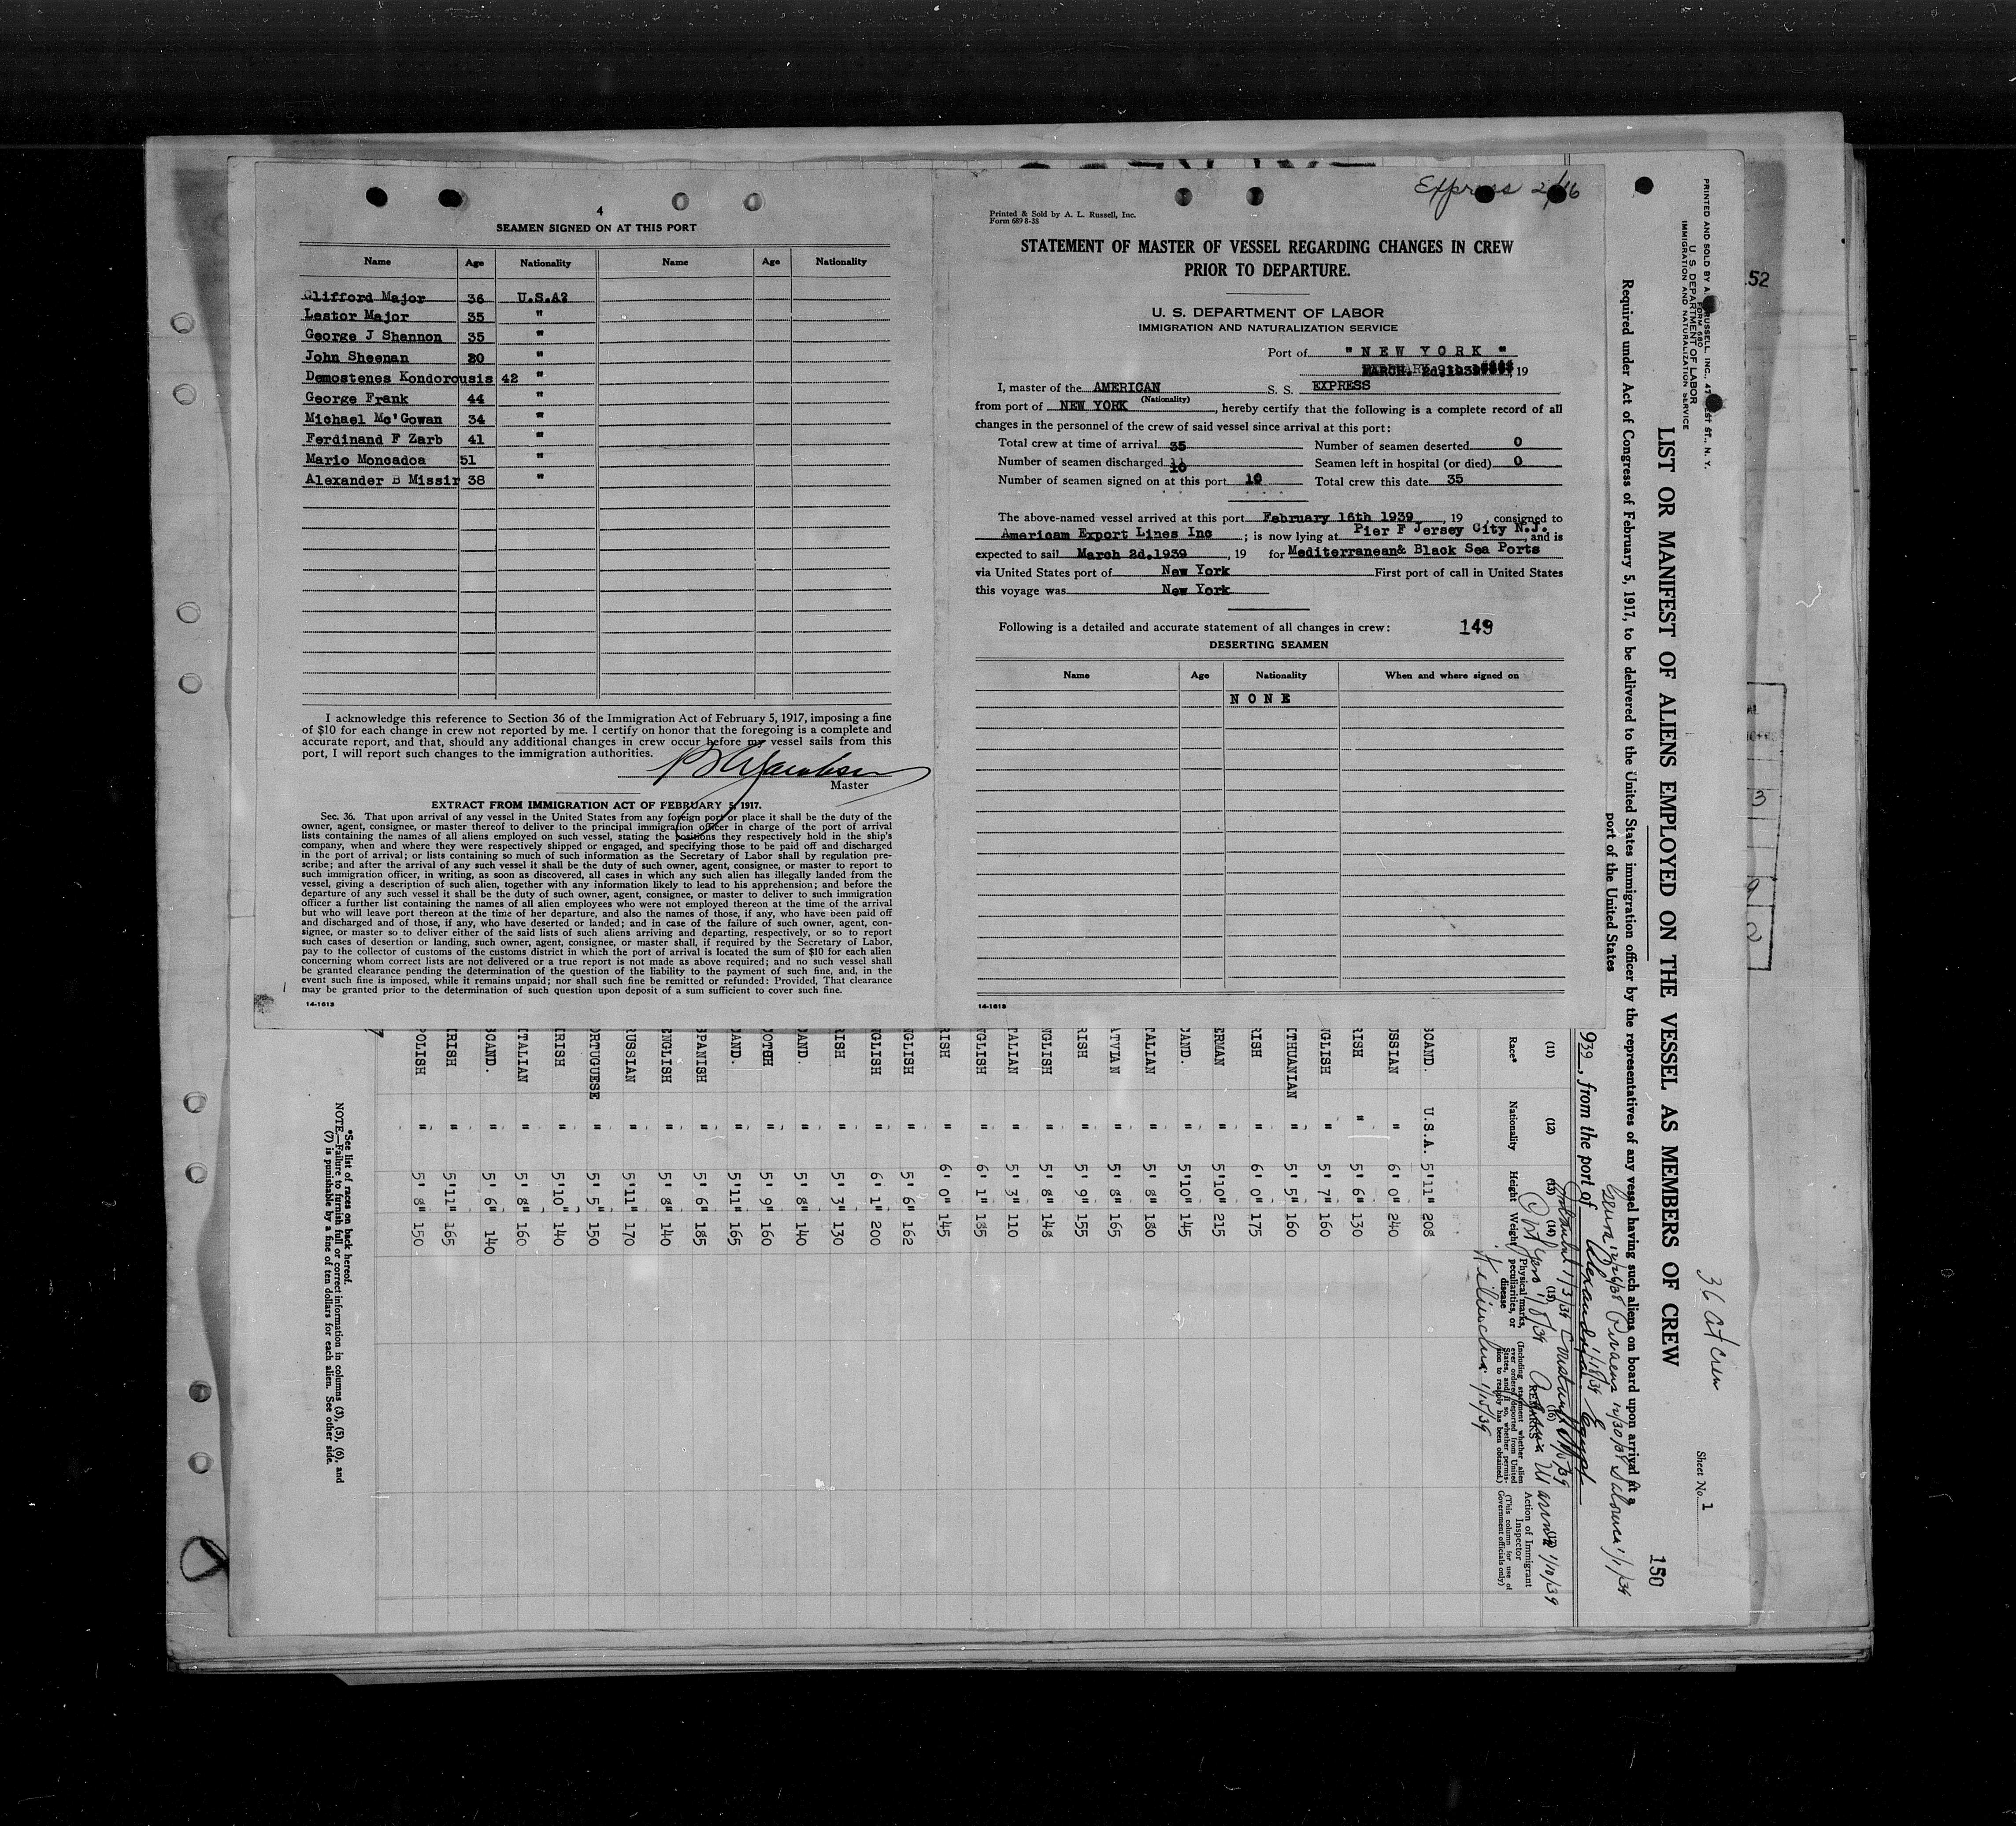 4
SEAMEN SIGNED ON AT THIS PORT
Name Age Nationality Name Age Nationality
Clifford Major 36 U.S.A?
Lestor Major 35 "
George J Shannon 35 "
John Sheenan 20 "
Demostenes Kondorousis 42 "
George Frank 44 "
Michael Mc'Gowan 34 "
Ferdinand F Zarb 41 "
Mario Moncadoa 51 "
Alexander B Missir 38 "
I acknowledge this reference to Section 36 of the Immigration Act of February 5, 1917, imposing a fine
of $10 for each change in crew not reported by me. I certify on honor that the foregoing is a complete and
accurate report, and that, should any additional changes in crew occur before my vessel sails from this
port, I will report such changes to the immigration authorities.
Master
EXTRACT FROM IMMIGRATION ACT OF FEBRUARY 5, 1917.
Sec. 36. That upon arrival of any vessel in the United States from any foreign port or place it shall be the duty of the
owner, agent, consignee, or master thereof to deliver to the principal immigration officer in charge of the port of arrival
lists containing the names of all aliens employed on such vessel, stating the positions they respectively hold in the ship's
company, when and where they were respectively shipped or engaged, and specifying those to be paid off and discharged
in the port of arrival; or lists containing so much of such information as the Secretary of Labor shall by regulation pre-
scribe; and after the arrival of any such vessel it shall be the duty of such owner, agent, consignee, or master to report to
such immigration officer, in writing, as soon as discovered, all cases in which any such alien has illegally landed from the
vessel, giving a description of such alien, together with any information likely to lead to his apprehension; and before the
departure of any such vessel it shall be the duty of such owner, agent, consignee, or master to deliver to such immigration
officer a further list containing the names of all alien employees who were not employed thereon at the time of the arrival
but who will leave port thereon at the time of her departure, and also the names of those, if any, who have been paid off
and discharged and of those, if any, who have deserted or landed; and in case of the failure of such owner, agent, con-
signee, or master so to deliver either of the said lists of such aliens arriving and departing, respectively, or so to report
such cases of desertion or landing, such owner, agent, consignee, or master shall, if required by the Secretary of Labor,
pay to the collector of customs of the customs district in which the port of arrival is located the sum of $10 for each alien
concerning whom correct lists are not delivered or a true report is not made as above required; and no such vessel shall
be granted clearance pending the determination of the question of the liability to the payment of such fine, and, in the
event such fine is imposed, while it remains unpaid; nor shall such fine be remitted or refunded: Provided, That clearance
may be granted prior to the determination of such question upon deposit of a sum sufficient to cover such fine.
14-1613
Express 2/16
Printed & Sold by A. L. Russell, Inc.
Form 689 8-38
STATEMENT OF MASTER OF VESSEL REGARDING CHANGES IN CREW
PRIOR TO DEPARTURE.
U. S. DEPARTMENT OF LABOR
IMMIGRATION AND NATURALIZATION SERVICE
Port of " NEW YORK "
MARCH. 2d.1939 , 19
I, master of the AMERICAN S. S. EXPRESS
(Nationality)
from port of NEW YORK , hereby certify that the following is a complete record of all
changes in the personnel of the crew of said vessel since arrival at this port:
Total crew at time of arrival 35 Number of seamen deserted 0
Number of seamen discharged 10 Seamen left in hospital (or died) 0
Number of seamen signed on at this port 10 Total crew this date 35
The above-named vessel arrived at this port February 16th 1939 , 19 , consigned to
Americam Export Lines Inc ; is now lying at Pier F Jersey City N.J. , and is
expected to sail March 2d.1939 , 19 for Mediterranean& Black Sea Ports
via United States port of New York First port of call in United States
this voyage was New York
Following is a detailed and accurate statement of all changes in crew: 149
DESERTING SEAMEN
Name Age Nationality When and where signed on
NONE
14-1613
52
3
PRINTED AND SOLD BY A. L. RUSSELL, INC., ST., N. Y.
FORM 680
U. S. DEPARTMENT OF LABOR
IMMIGRATION AND NATURALIZATION SERVICE
36 at crew
Sheet No. 1
150
LIST OR MANIFEST OF ALIENS EMPLOYED ON THE VESSEL AS MEMBERS OF CREW
Required under Act of Congress of February 5, 1917, to be delivered to the United States immigration officer by the representatives of any vessel having such aliens on board upon arrival at a
port of the United States
Genoa 12/26/38 Piraeus 12/30/38 Salonica 1/1/39
939, from the port of Alexandria 1/18/39 Egypt
Istanbul 1/3/39
Varna 1/10/39
1/15/39
(11) (12) (13) (14) (15) (16)
Race* Nationality Height Weight Physical marks, peculiarities, or disease
REMARKS
(Including statement whether alien ever ordered deported from United States, and if so, whether permission to reapply has been obtained.)
Action of Immigrant Inspector
(This column for use of Government officials only)
SCAND. U.S.A. 5'11" 208
USSIAN " 6' 0" 240
RISH " 5' 6" 130
NGLISH " 5' 7" 160
ITHUANIAN " 5' 5" 160
RISH " 6' 0" 175
ERMAN " 5'10" 215
CAND. " 5'10" 145
TALIAN " 5' 8" 180
ATVIAN " 5' 8" 165
RISH " 5' 9" 155
NGLISH " 5' 8" 148
TALIAN " 5' 3" 110
NGLISH " 6' 1" 185
RISH " 6' 0" 145
NGLISH " 5' 6" 162
NGLISH " 6' 1" 200
RISH " 5' 3" 130
CAND. " 5' 8" 140
COTCH " 5' 9" 160
CAND. " 5'11" 165
SPANISH " 5' 6" 185
ENGLISH " 5' 8" 140
RUSSIAN " 5'11" 170
ORTUGUESE " 5' 5" 150
IRISH " 5'10" 140
ITALIAN " 5' 8" 160
SCAND. " 5' 6" 140
IRISH " 5'11" 165
POLISH " 5' 8" 150
*See list of races on back hereof.
NOTE.—Failure to furnish full or correct information in columns (3), (5), (6), and
(7) is punishable by a fine of ten dollars for each alien. See other side.